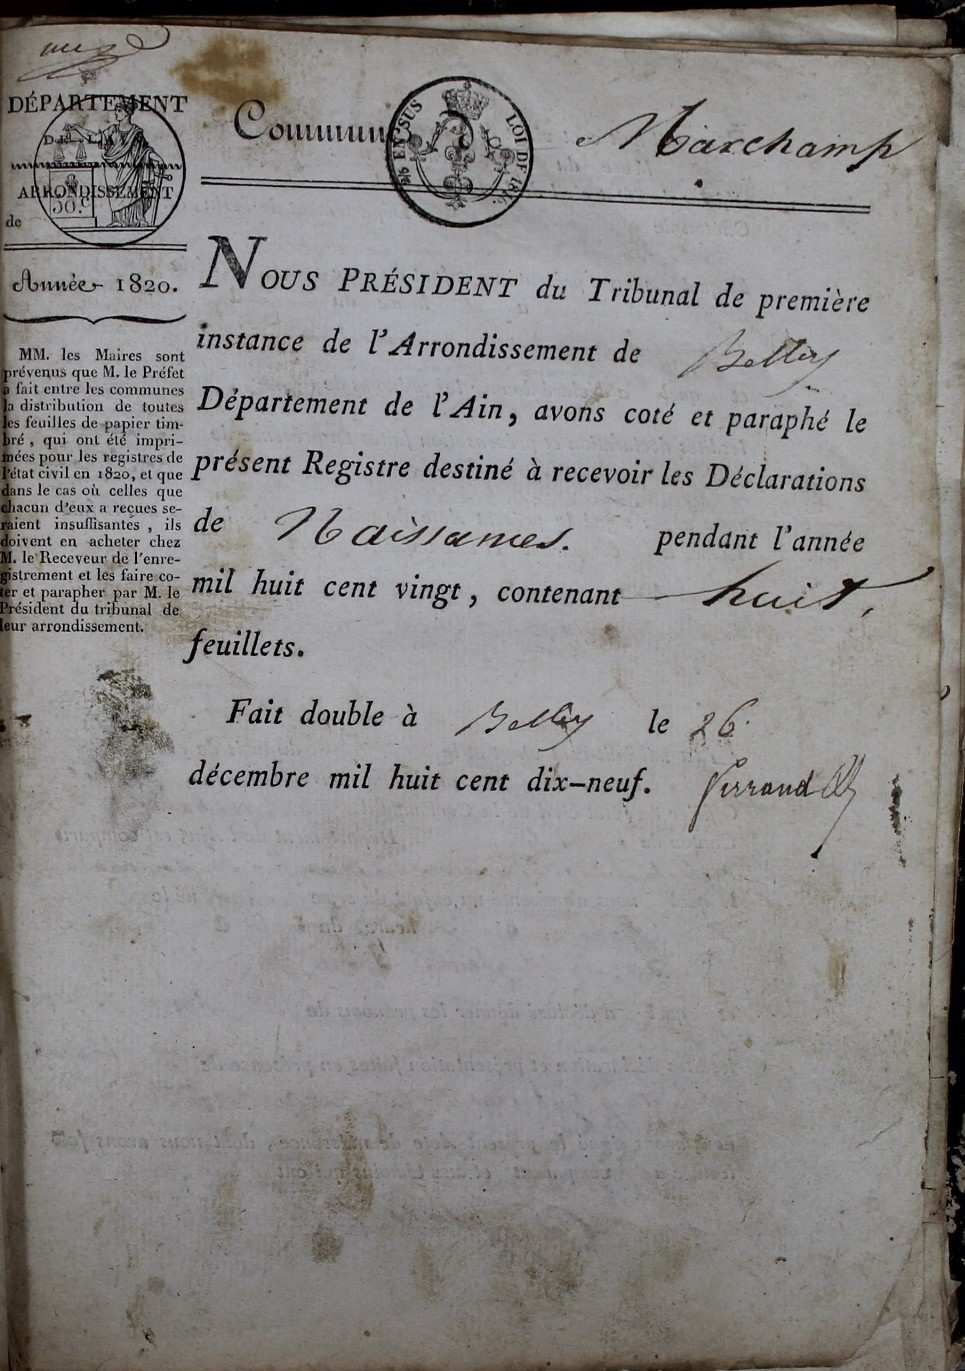 DÉPARTEMENT
ARRONDISSEMENT
50.c
de
Année 1820.
MM. les Maires sont
prévenus que M. le Préfet
a fait entre les communes
la distribution de toutes
les feuilles de papier tim-
bré, qui ont été impri-
mées pour les registres de
l'état civil en 1820, et que
dans le cas où celles que
chacun d'eux a reçues se-
raient insuffisantes, ils
doivent en acheter chez
M. le Receveur de l'enre-
gistrement et les faire co-
ter et parapher par M. le
Président du tribunal de
leur arrondissement.
Commune Marchamp
LOI DE
NOUS PRÉSIDENT du Tribunal de première
instance de l'Arrondissement de Belley
Département de l'Ain, avons coté et paraphé le
présent Registre destiné à recevoir les Déclarations
de Naissances. pendant l'année
mil huit cent vingt, contenant huit,
feuillets.
Fait double à Belley le 26
décembre mil huit cent dix-neuf.